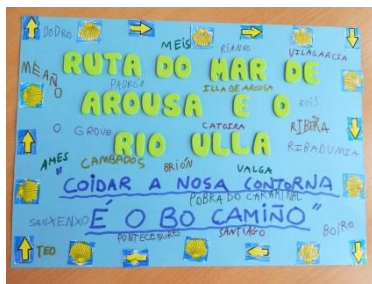 DODRO MEIS RIANXO VILAGARCIA
RUTA DO MAR DE
MEAÑO PADRÓN ILLA DE AROUSA
AROUSA E O
ROIS
O GROVE CATOIRA RIBEIRA
RIO ULLA
RIBADUMIA
AMES CAMBADOS BRIÓN VALGA
"COIDAR A NOSA CONTORNA
POBRA DO CARAMIÑAL
SANXENXO É O BO CAMIÑO"
PONTECESURES SANTIAGO BOIRO
TEO